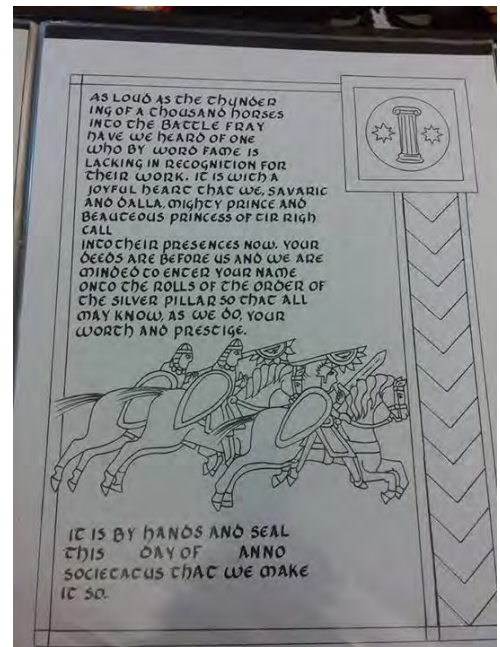 AS LOUD AS THE THUNDER
ING OF A THOUSAND HORSES
INTO THE BATTLE FRAY
HAVE WE HEARD OF ONE
WHO BY WORD FAME IS
LACKING IN RECOGNITION FOR
THEIR WORK. IT IS WITH A
JOYFUL HEART THAT WE, SAVARIC
AND DALLA, MIGHTY PRINCE AND
BEAUTEOUS PRINCESS OF TIR RIGH
CALL
INTO THEIR PRESENCES NOW. YOUR
DEEDS ARE BEFORE US AND WE ARE
MINDED TO ENTER YOUR NAME
ONTO THE ROLLS OF THE ORDER OF
THE SILVER PILLAR SO THAT ALL
MAY KNOW, AS WE DO, YOUR
WORTH AND PRESTIGE.
IT IS BY HANDS AND SEAL
THIS DAY OF ANNO
SOCIETATUS THAT WE MAKE
IT SO.